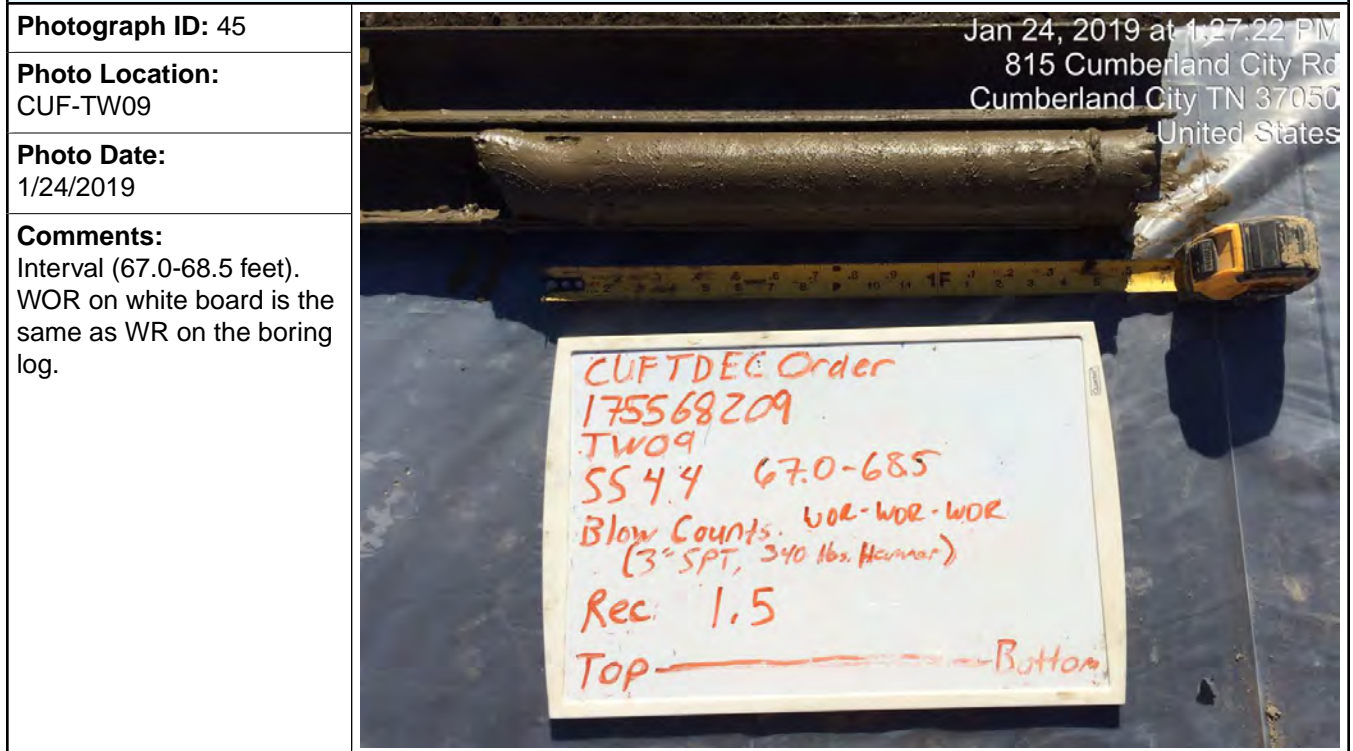 Photograph ID: 45
Photo Location:
CUF-TW09
Photo Date:
1/24/2019
Comments:
Interval (67.0-68.5 feet).
WOR on white board is the
same as WR on the boring
log.
Jan 24, 2019 at 1:27:22 PM
815 Cumberland City Rd
Cumberland City TN 37050
United States
1F
CUFTDEC Order
175568209
TW09
SS44 67.0-68.5
Blow Counts. WOR-WOR-WOR
(3" SPT, 340 lbs. Hammer)
Rec. 1.5
Top Bottom